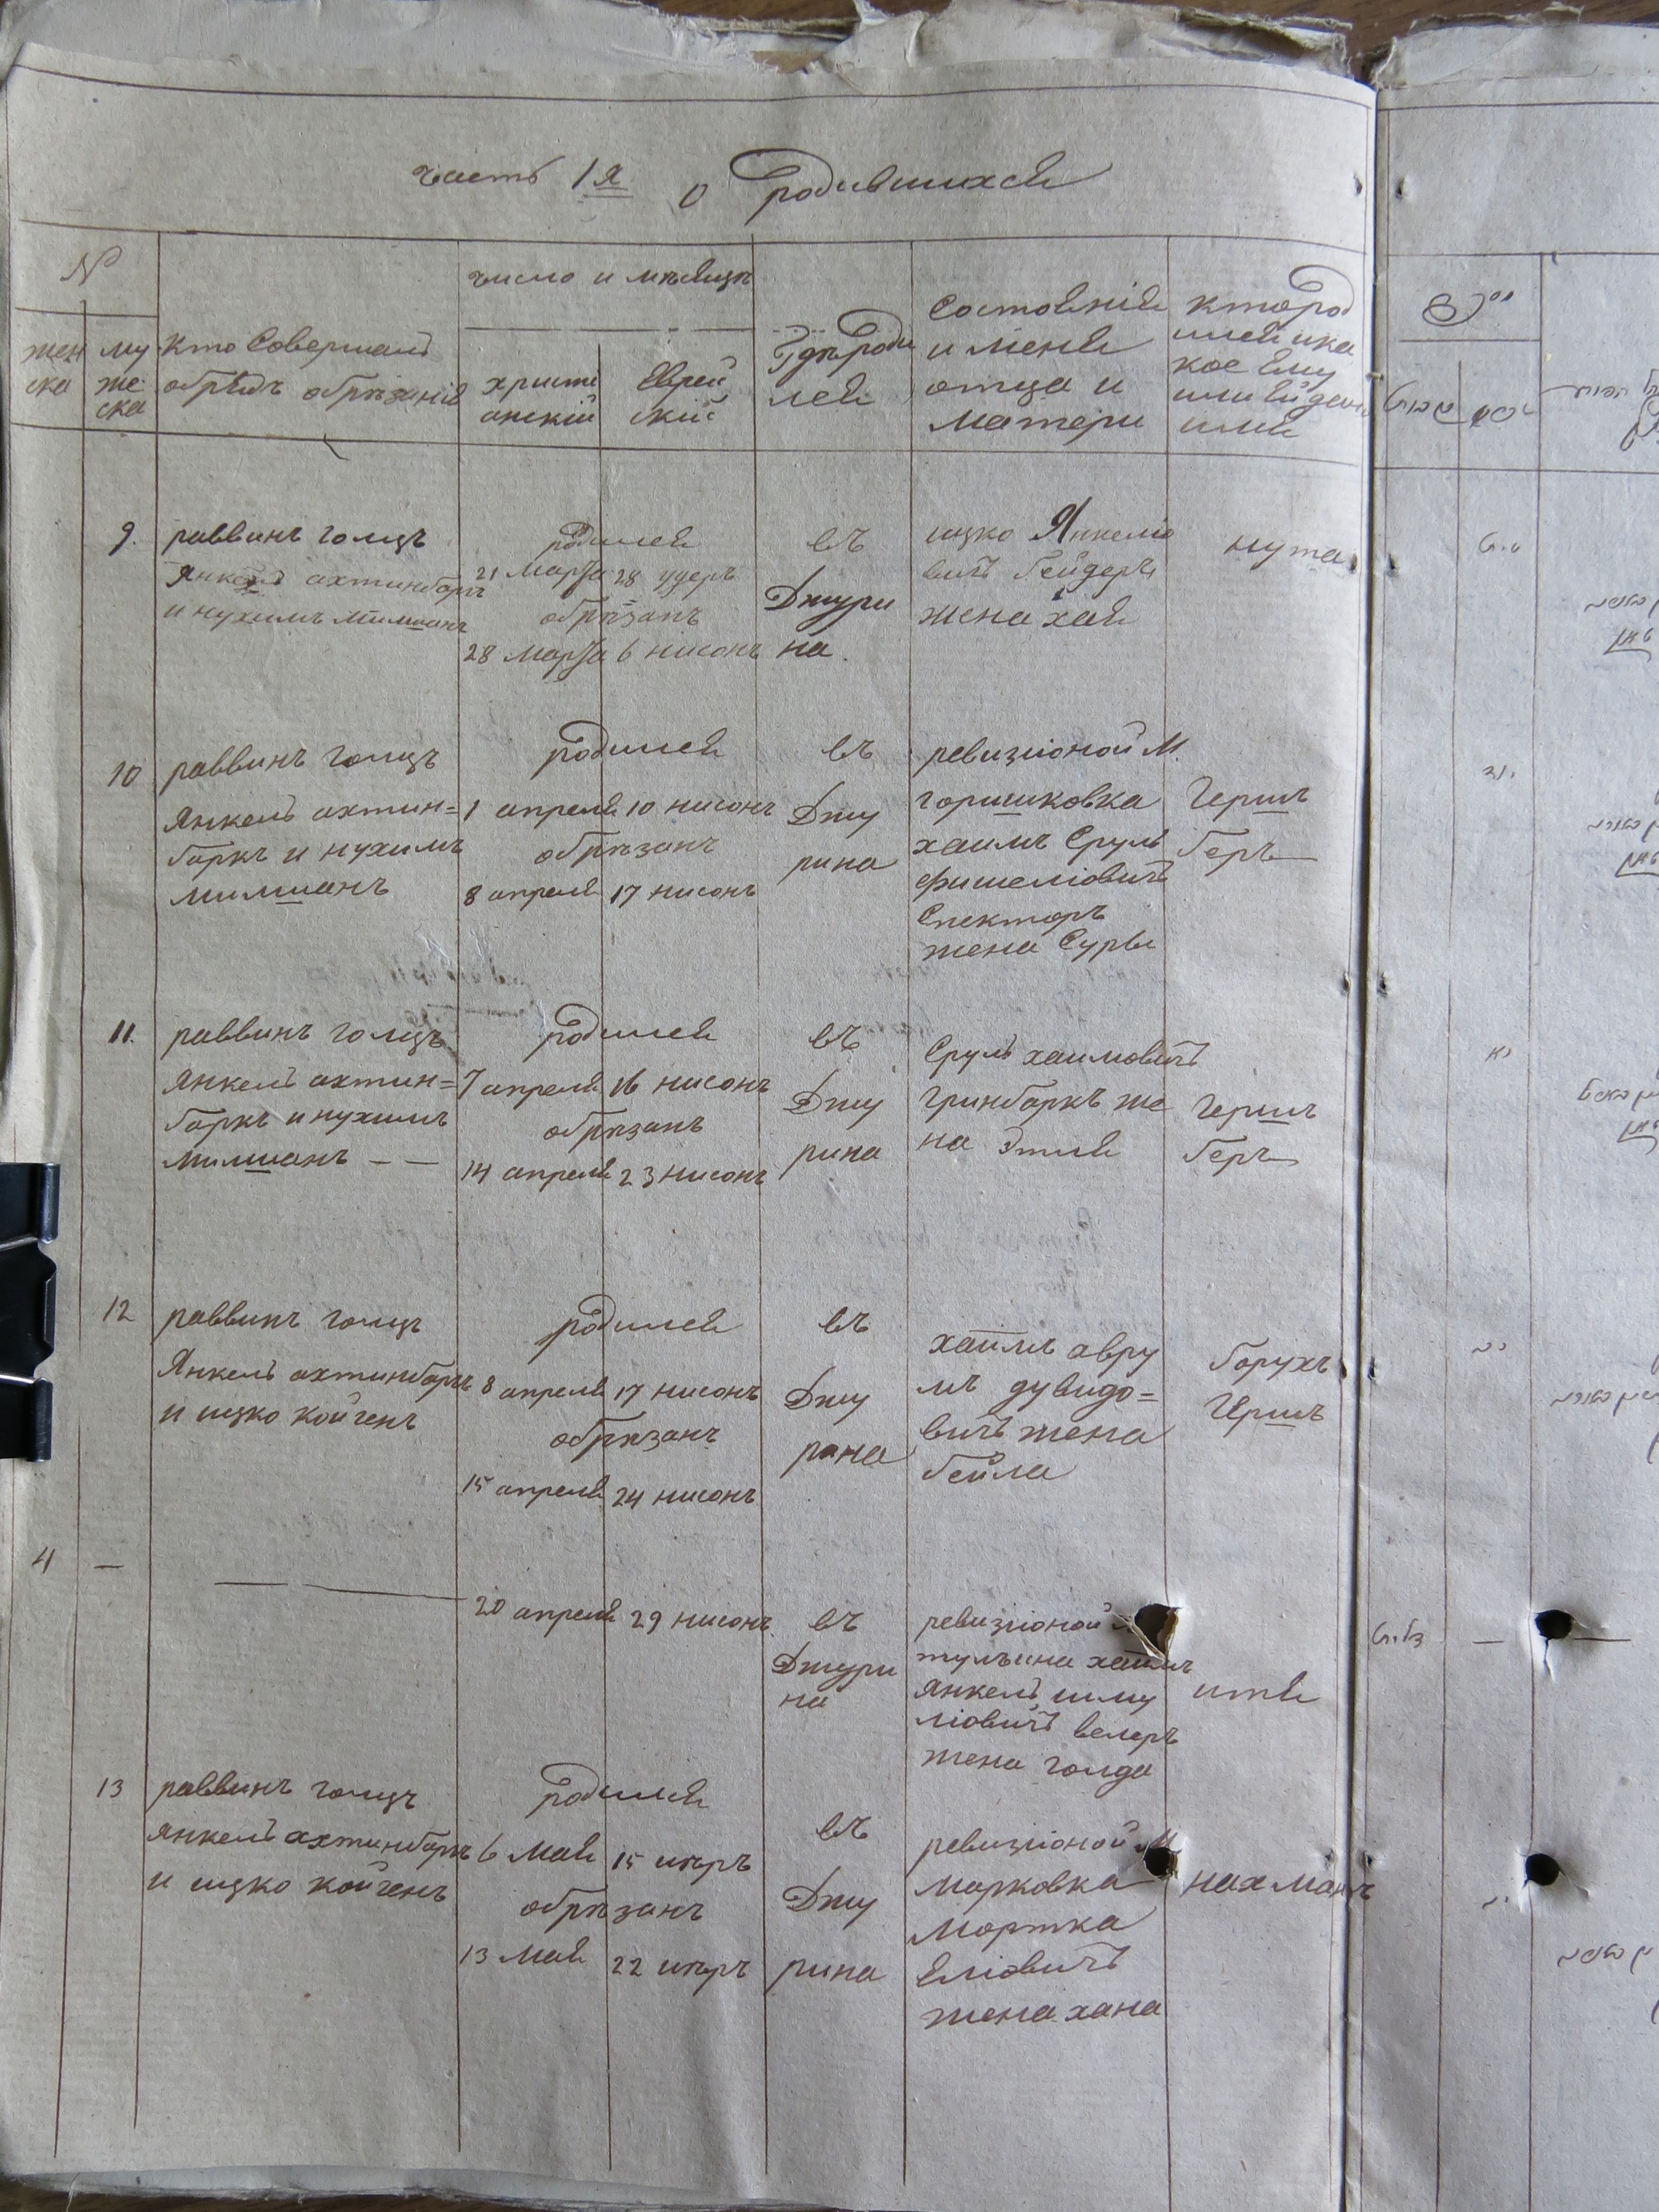 часть 1я о родившихся
№
жен
ска
му
же
ска
кто Совершалъ
обрядъ обрѣзанія
число и мѣсяцъ
христи
анскій
Еврей
скій
Гдѣ роди
лся
Состояніе
и меня
отца и
матери
кто род
ился и ка
кое ему
или ей дано
имя
9.
раввинъ голцъ
Янкель ахтинбаркъ
и нухимъ милманъ
родился
21 Марта 28 удеръ
обрѣзанъ
28 Марта 6 нисонъ
въ
Джури
на.
ицко Янкеліо
вичъ бейдеръ
жена хая
нута
10
раввинъ голцъ
Янкель ахтин=
баркъ и нухимъ
милманъ
родился
1 апреля 10 нисонъ
обрѣзанъ
8 апреля 17 нисонъ
въ
Джу
рина
ревизіоной М.
горишковка
хаимъ Сруль
фишеліовичъ
Спекторъ
жена Суря
Гершъ
беръ
11.
раввинъ голцъ
Янкель ахтин=
баркъ и нухимъ
милманъ — —
родился
7 апреля 16 нисонъ
обрѣзанъ
14 апреля 23 нисонъ
въ
Джу
рина
Сруль хаимовичъ
гринбаркъ же
на Этля
Гершъ
беръ
12
раввинъ голцъ
Янкель ахтинбаркъ
и ицко койгенъ
родился
8 апреля 17 нисонъ
обрѣзанъ
15 апреля 24 нисонъ
въ
Джу
рина
хаимъ авру
мъ дувидо=
вичъ жена
бейла
борухъ
Гершъ
4 —
20 апреля 29 нисонъ
въ
Джури
на
ревизіоной
тульчина хаимъ
Янкель шму
ліовичъ велеръ
жена голда
итя
13
раввинъ голцъ
Янкель ахтинбаркъ
и ицко койгенъ
родился
6 мая 15 иѣръ
обрѣзанъ
13 мая 22 иѣръ
въ
Джу
рина
ревизіоной М
марковка
мортка
Еліовичъ
жена хана
нахманъ